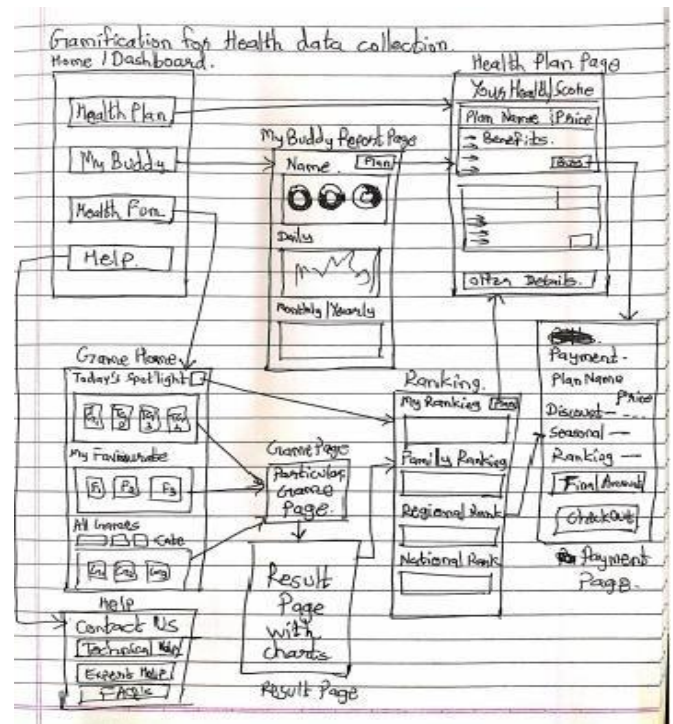 Gamification for Health data collection.
Home / Dashboard.
Health Plan
My Buddy
Health Fun
Help.
My Buddy Report Page
Name. Plan
Daily
Monthly / Yearly
Health Plan Page
Your Health Score
Plan Name Price
Benefits.
Other Details.
Game Home
Today's Spotlight
My Favourate
F1 F2 F3
All Games
Cate
Game Page
Particular
Game
Page.
Result
Page
with
charts
Result Page
Ranking.
My Ranking Plan
Family Ranking
Regional Rank
National Rank
Payment.
Plan Name
Price
Discount
Seasonal
Ranking
Final Amount
CheckOut
Payment
Page.
Help
Contact Us
Technical Help
Expert Help
FAQ's